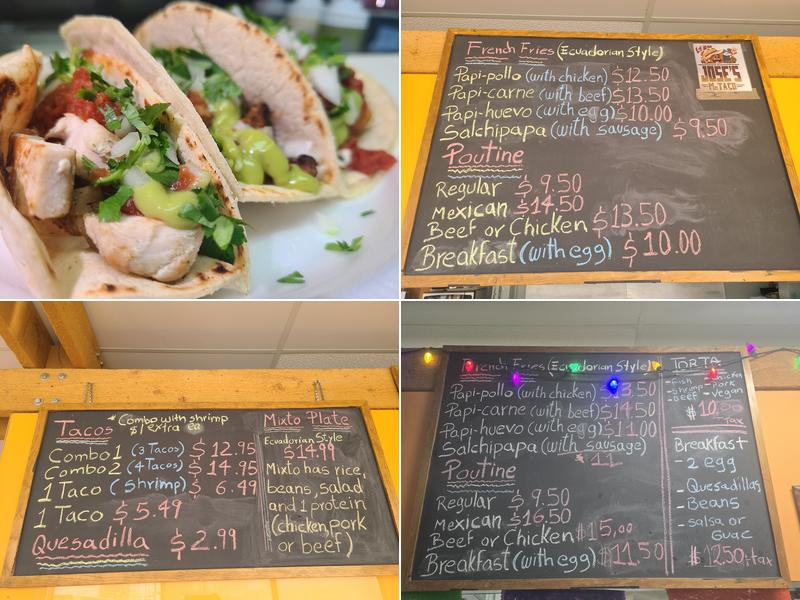 French Fries (Ecuadorian Style)
Papi-pollo (with chicken) $12.50
Papi-carne (with beef) $13.50
Papi-huevo (with egg) $10.00
Salchipapa (with sausage) $9.50
Poutine
Regular $9.50
Mexican $14.50
Beef or Chicken $13.50
Breakfast (with egg) $10.00
JOSE'S
Mr TACO
Tacos
*Combo with shrimp
$1 extra ea
Combo 1 (3 Tacos) $12.95
Combo 2 (4 Tacos) $14.95
1 Taco (Shrimp) $6.49
1 Taco $5.49
Quesadilla $2.99
Mixto Plate
Ecuadorian Style
$14.99
Mixto has rice,
beans, salad
and 1 protein
(chicken, pork
or beef)
French Fries (Ecuadorian Style)
Papi-pollo (with chicken) 3.50
Papi-carne (with beef) $14.50
Papi-huevo (with egg) $11.00
Salchipapa (with sausage)
$11
Poutine
Regular $9.50
Mexican $16.50
Beef or Chicken $15,00
Breakfast (with egg) $11.50
TORTA
-Fish -Chicken
-Shrimp -Pork
-Beef -Vegan
$10.
+tax
Breakfast
- 2 egg
- Quesadillas
- Beans
- salsa or
Guac
$12.50+tax